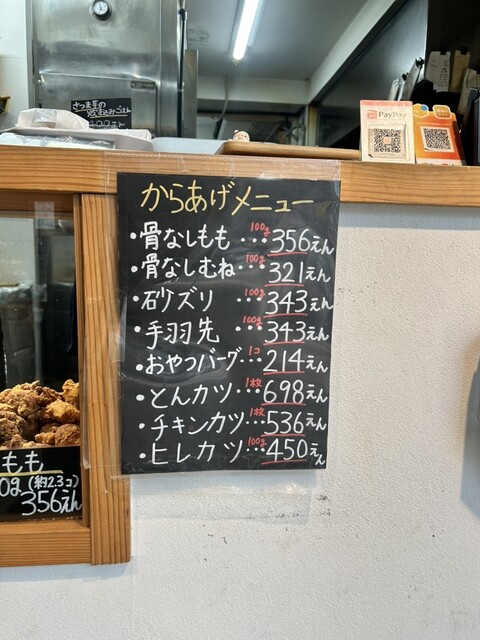 さつま芋の
炊き込みごはん
PayPay
からあげメニュー
・骨なしもも・・・100g 356えん
・骨なしむね・・・100g 321えん
・砂ズリ・・・100g 343えん
・手羽先・・・100g 343えん
・おやつバーグ・・・1コ 214えん
・とんカツ・・・1枚 698えん
・チキンカツ・・・1枚 536えん
・ヒレカツ・・・100g 450えん
もも
0g(約2.3コ)
356えん